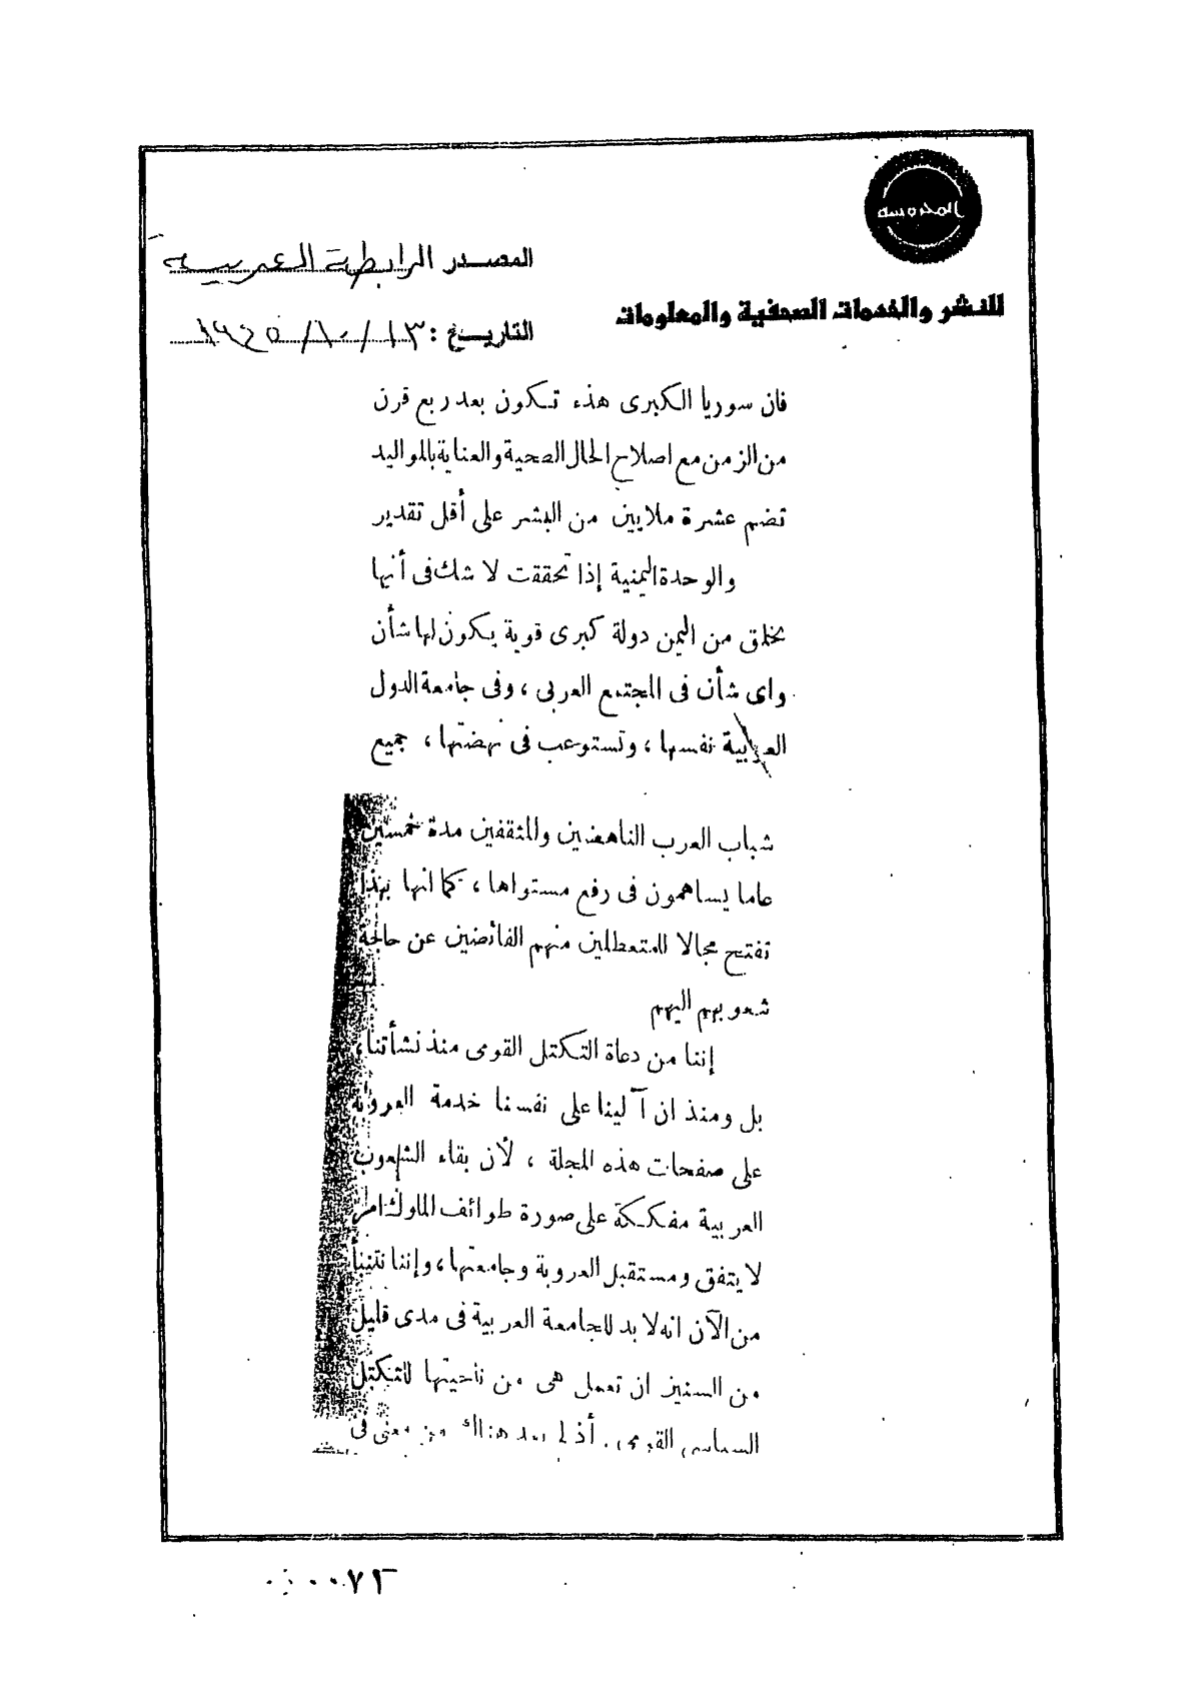 المحروسة
المصدر الرابطة العربية
للنشر والخدمات الصحفية والمعلومات
التاريخ :
فان سوريا الكبرى هذه تكون بعد ربع قرن
من الزمن مع اصلاح الحال الصحية والعناية بالمواليد
تضم عشرة ملايين من البشر على أقل تقدير
والوحدة اليمنية إذا تحققت لا شك فى أنها
تخلق من اليمن دولة كبرى قوية يكون لها شأن
واى شأن فى المجتمع العربى ، وفى جامعة الدول
العربية نفسها ، وتستوعب فى نهضتها ، جميع
شباب العرب الناهضين والمثقفين مدة خمسين
عاما يساهمون فى رفع مستواها ، كما انها بهذا
تفتح مجالا للمتعطلين منهم الفائضين عن حاجة
شعوبهم اليهم
إننا من دعاة التكتل القومى منذ نشأتنا ،
بل ومنذ ان آلينا على نفسنا خدمة العروبة
على صفحات هذه المجلة ، لأن بقاء الشعوب
العربية مفككة على صورة طوائف الملوك امر
لا يتفق ومستقبل العروبة وجامعتها ، وإننا نتنبأ
من الآن انه لا بد للجامعة العربية فى مدى قليل
من السنين ان تعمل هى من ناحيتها للتكتل
السياسى القومى . هناك من معنى فى